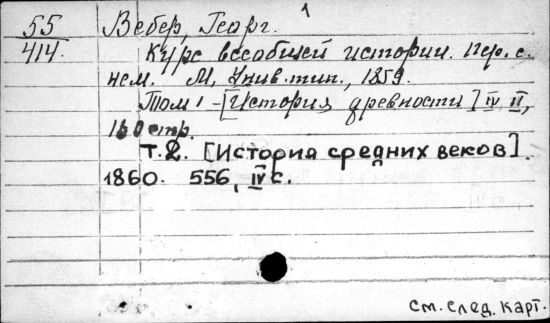 1
55 Вебер, Георг.
414. Курс всеобщей истории. Пер. с
нем. М, Унив. тип., 1859.
Том 1 - [История древности] IV, II,
160 стр.
Т. 2. [История средних веков].
1860. 556, IV с.
см. след. карт.